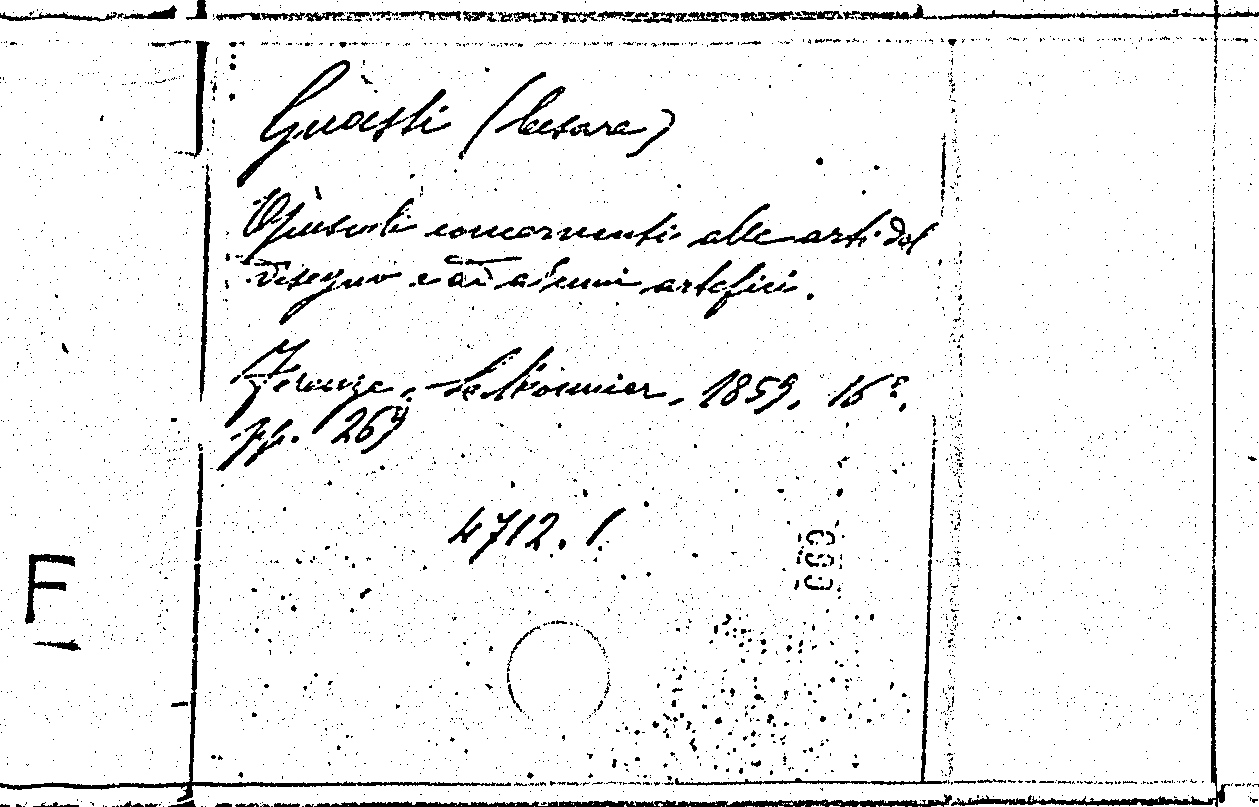 Guasti (Cesare)
Opuscoli concernenti alle arti del
disegno e ad alcuni artefici.
Firenze, Le Monnier, 1859. 16º.
pp. 269
4712. 1.
F